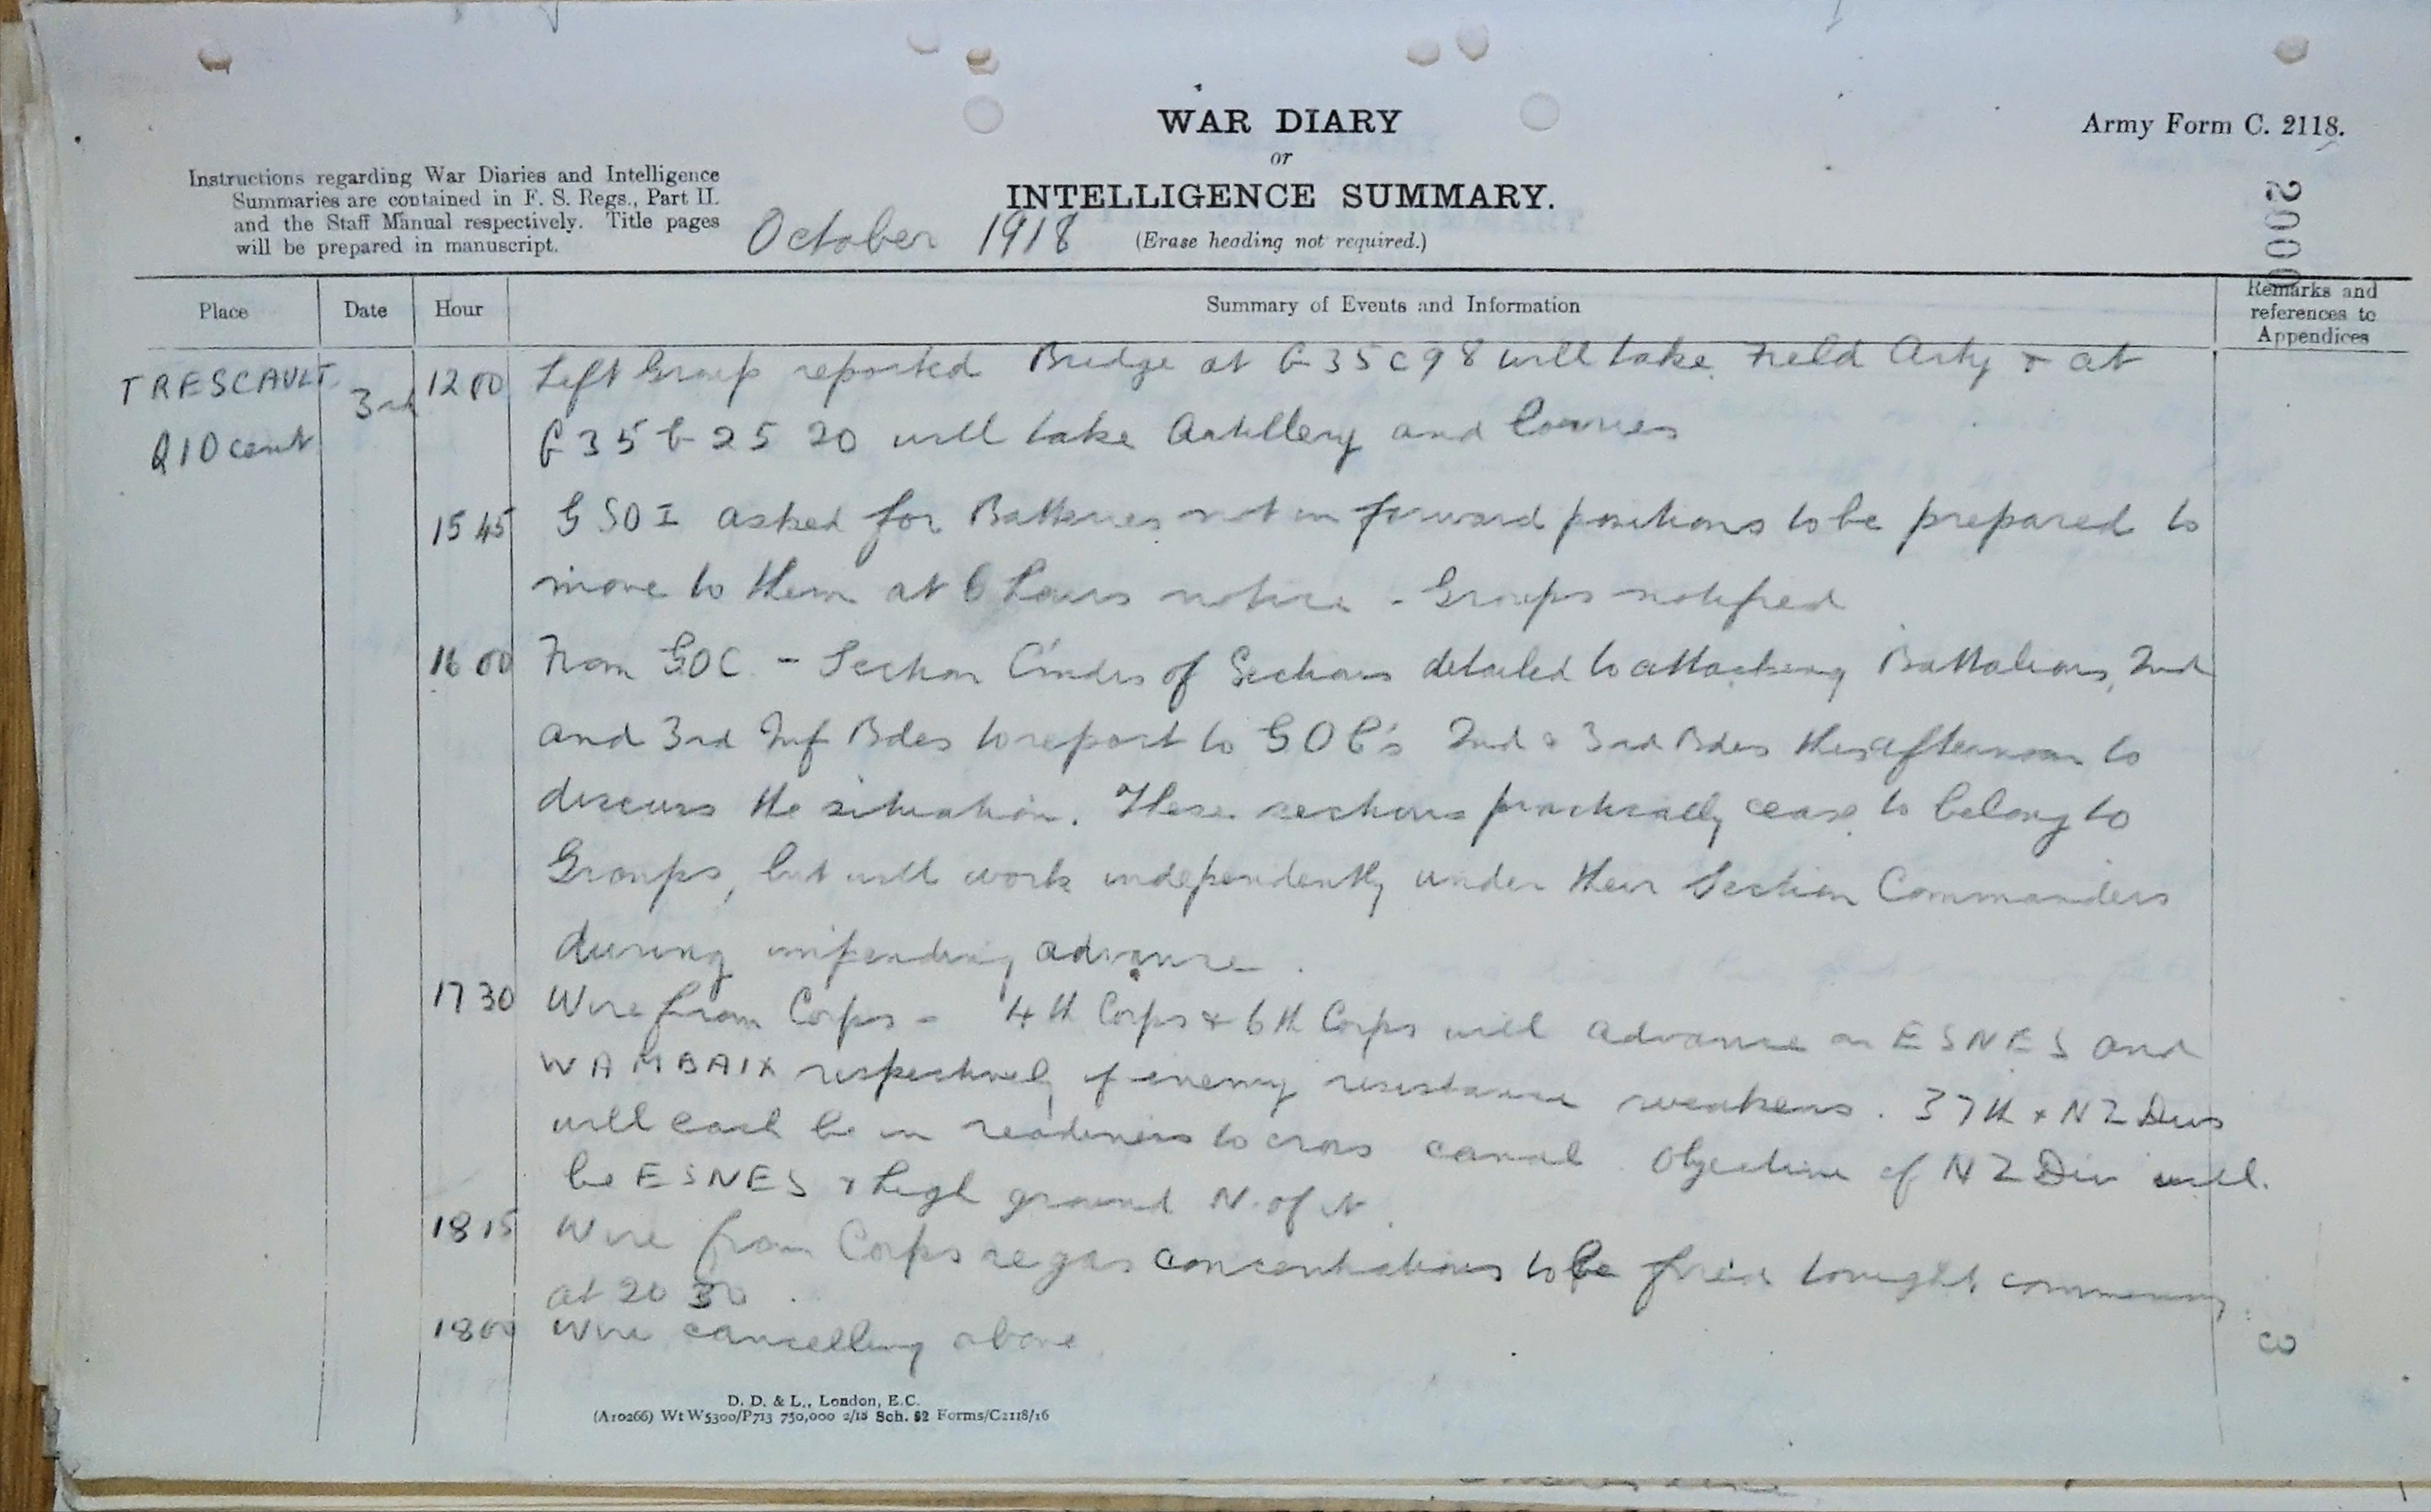 WAR DIARY
or
INTELLIGENCE SUMMARY.
(Erase heading not required.)
Army Form C. 2118.
Instructions regarding War Diaries and Intelligence
Summaries are contained in F. S. Regs., Part II.
and the Staff Manual respectively. Title pages
will be prepared in manuscript.
October 1918
0002
Place
Date
Hour
Summary of Events and Information
Remarks and
references to
Appendices
TRESCAULT
Q10 cent
3rd
1200 Left Group reported Bridge at G35c98 will take Field Arty & at
G35b 25 20 will take Artillery and Lorries
1545 GSO I asked for Batteries not in forward positions to be prepared to
move to them at 6 hours notice - Groups notified
1600 From GOC - Section Cmdrs of Sections detailed to attacking Battalions, 2nd
and 3rd Inf Bdes to report to GOC's 2nd & 3rd Bdes this afternoon to
discuss the situation. These sections practically cease to belong to
Groups, but will work independently under their Section Commanders
during impending advance.
1730 Wire from Corps - 4th Corps & 6th Corps will advance on ESNES and
WAMBAIX respectively if enemy resistance weakens. 37th & NZ Divs
will each be in readiness to cross canal. Objective of NZ Div will
be ESNES & high ground N. of it.
1815 Wire from Corps re gas concentrations to be fired tonight, commencing
at 20 30.
1800 Wire cancelling above
3
D. D. & L., London, E.C.
(A10266) Wt W5300/P713 750,000 2/18 Sch. 52 Forms/C2118/16